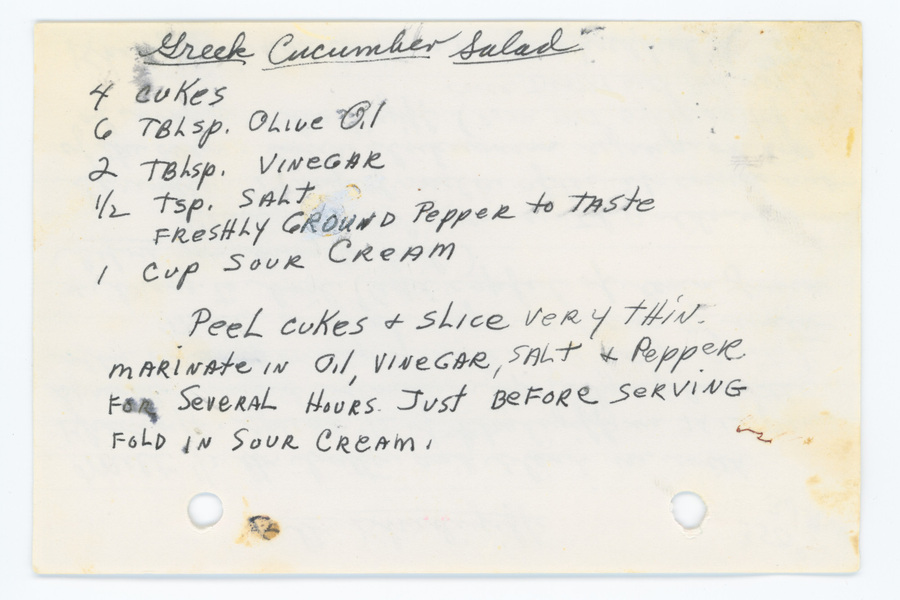 Greek Cucumber Salad
4 cukes
6 TBLsp. Olive Oil
2 TBLsp. VINEGAR
1/2 tsp. SALT
FRESHLY GROUND Pepper to TASTE
1 cup SOUR CREAM
Peel cukes & SLICE VERY THIN.
MARINATE IN OIL, VINEGAR, SALT & Pepper
FOR SEVERAL HOURS. JUST BEFORE SERVING
FOLD IN SOUR CREAM.